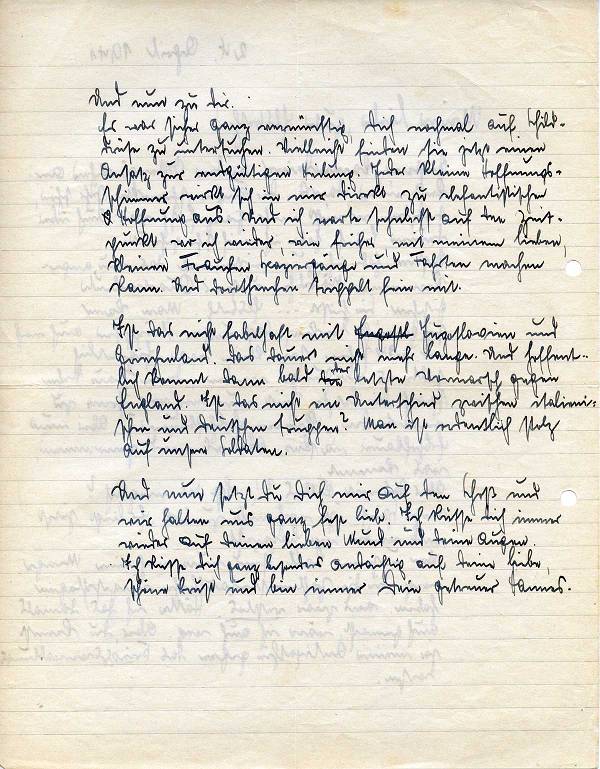 Und nun zu Dir.
Es war sicher ganz vernünftig, Dich nochmal auf Schild-
drüse zu untersuchen. Vielleicht finden sie jetzt einen
Ansatz zur endgültigen Heilung. Jeder kleine Hoffnungs-
schimmer wirkt sich in mir direkt zu elefantistischen
Hoffnung aus. Und ich warte sehnlichst auf den Zeit-
punkt wo ich wieder, wie früher mit meinem lieben,
kleinen Frauchen Spaziergänge und Fahrten machen
kann. Und Dortchen trippelt fein mit.
Ist das nicht fabelhaft mit Jugosl Jugoslavien und
Griechenland. Das dauert nicht mehr lange. Und hoffent-
lich kommt dann bald der letzte Vormarsch gegen
England. Ist das nicht ein Unterschied zwischen italieni-
schen und deutschen Truppen? Man ist ordentlich stolz
auf unsere Soldaten.
Und nun setzt Du Dich mir auf den Schoß und
wir halten uns ganz fest lieb. Ich küsse Dich immer
wieder auf Deinen lieben Mund und Deine Augen.
Ich küsse Dich ganz besonders andächtig auf Deine liebe,
schöne Brust und bin immer Dein getreuer Hannes.